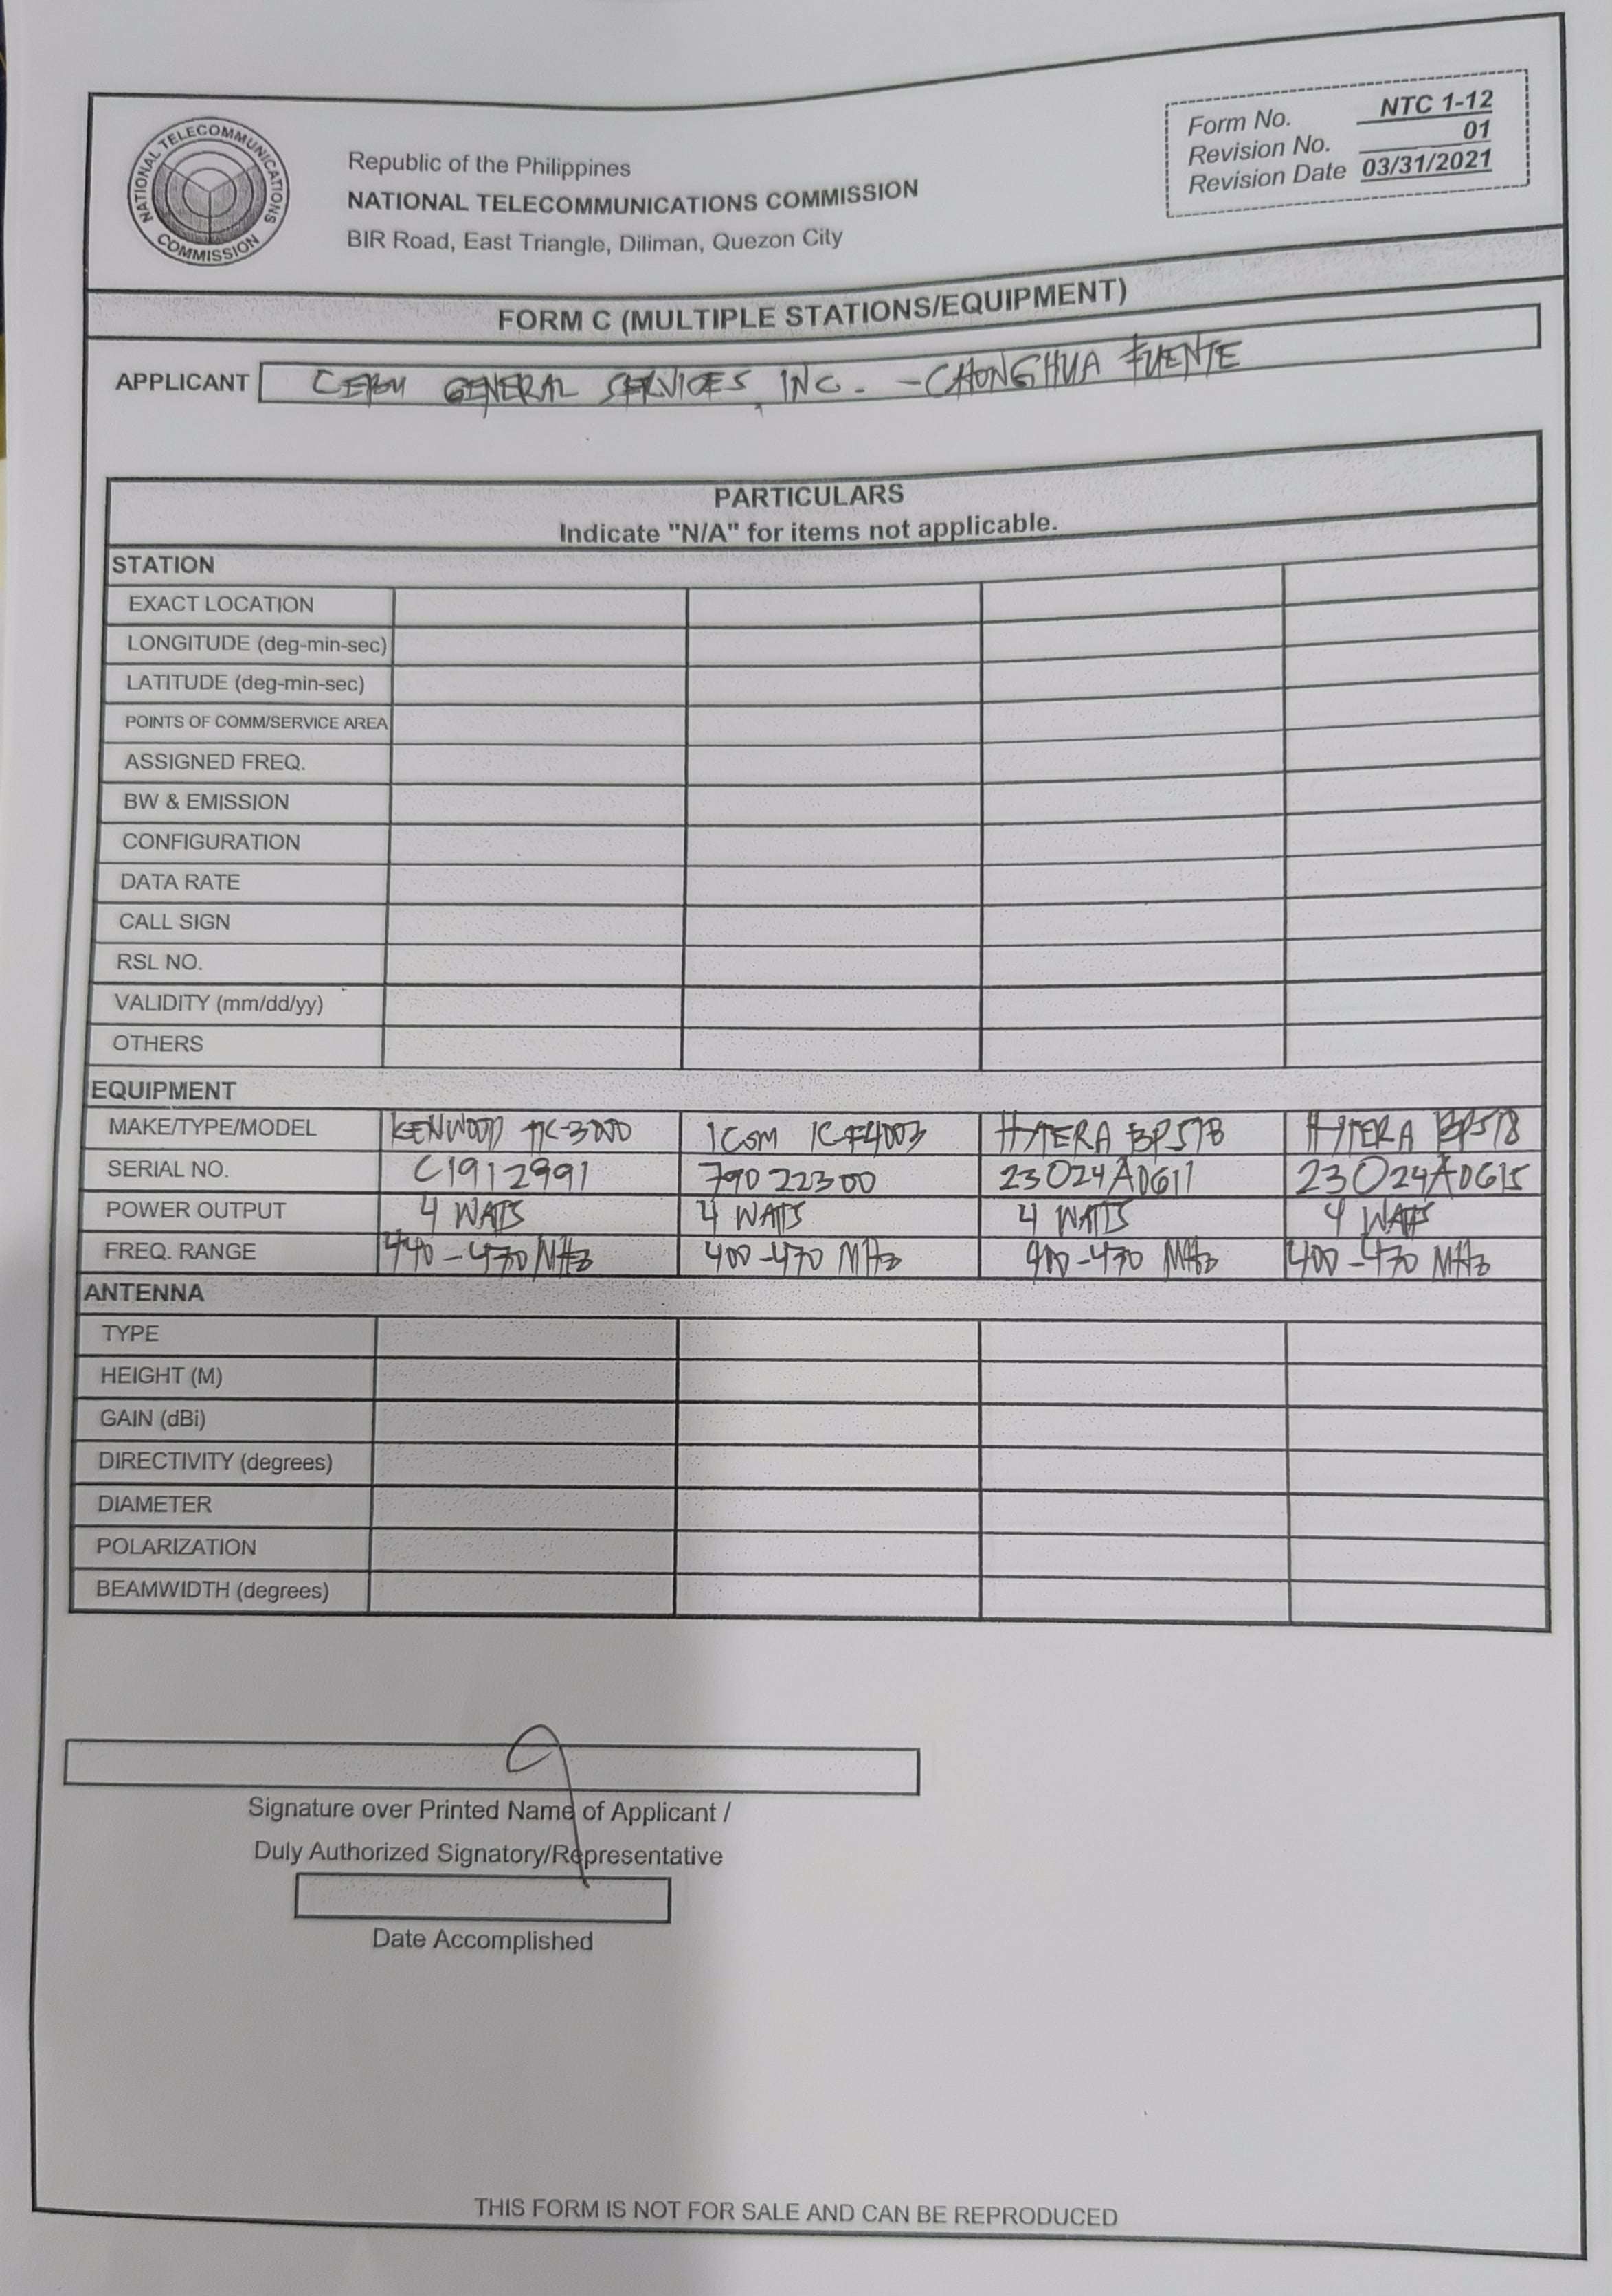 NATIONAL TELECOMMUNICATIONS COMMISSION
Republic of the Philippines
NATIONAL TELECOMMUNICATIONS COMMISSION
BIR Road, East Triangle, Diliman, Quezon City
Form No. NTC 1-12
Revision No. 01
Revision Date 03/31/2021
FORM C (MULTIPLE STATIONS/EQUIPMENT)
APPLICANT GENERAL SERVICES, INC. - CHONGHUA FUENTE
PARTICULARS
Indicate "N/A" for items not applicable.
STATION
EXACT LOCATION
LONGITUDE (deg-min-sec)
LATITUDE (deg-min-sec)
POINTS OF COMM/SERVICE AREA
ASSIGNED FREQ.
BW & EMISSION
CONFIGURATION
DATA RATE
CALL SIGN
RSL NO.
VALIDITY (mm/dd/yy)
OTHERS
EQUIPMENT
MAKE/TYPE/MODEL KENWOOD TK-3000 ICOM IC-F4003 HYTERA BP518 HYTERA BP518
SERIAL NO. C1912991 79022300 23024A0611 23024A0615
POWER OUTPUT 4 WATTS 4 WATTS 4 WATTS 4 WATTS
FREQ. RANGE 440-470 MHz 400-470 MHz 400-470 MHz 400-470 MHz
ANTENNA
TYPE
HEIGHT (M)
GAIN (dBi)
DIRECTIVITY (degrees)
DIAMETER
POLARIZATION
BEAMWIDTH (degrees)
Signature over Printed Name of Applicant /
Duly Authorized Signatory/Representative
Date Accomplished
THIS FORM IS NOT FOR SALE AND CAN BE REPRODUCED